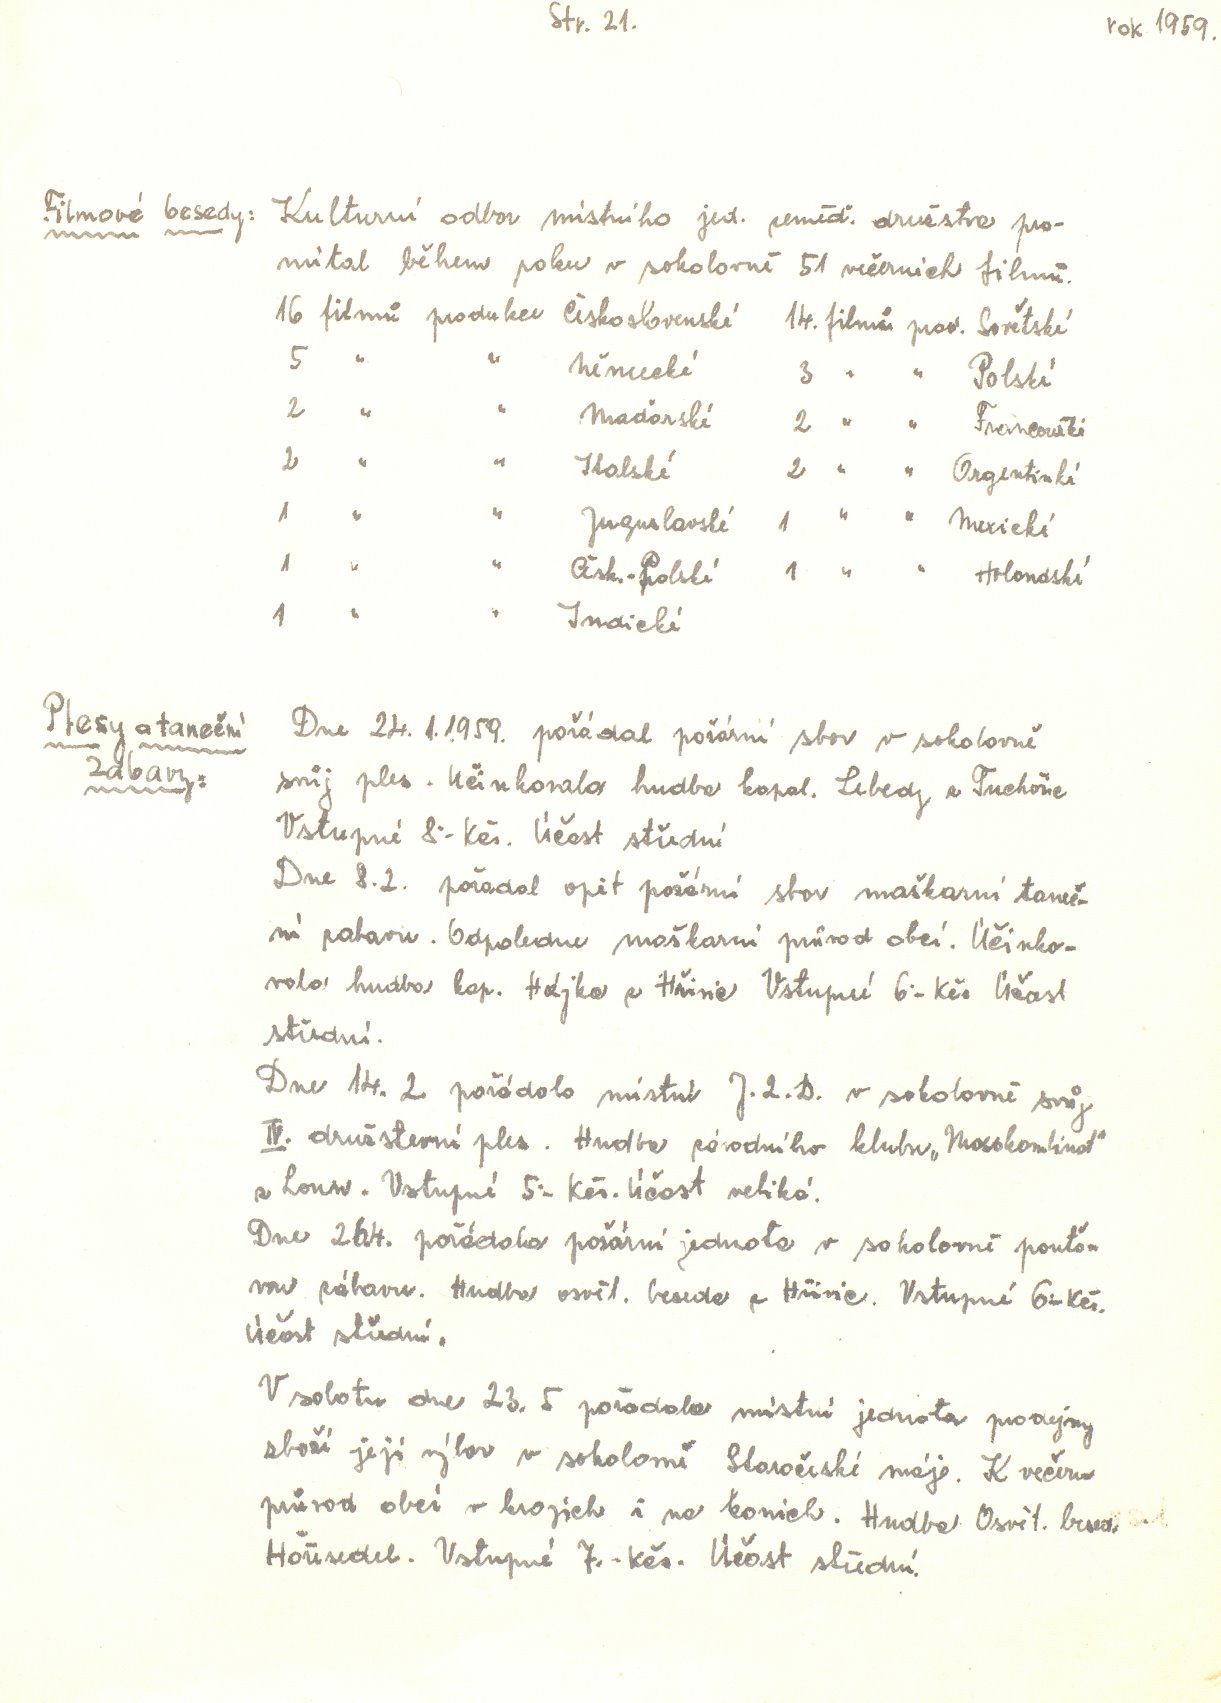 Str. 21.
rok 1959.
Filmové besedy: Kulturní odbor místního jed. zeměd. družstva pro-
mítal během roku v sokolovně 51 večerních filmů.
16 filmů produkce Československé 14. filmů prod. Sovětské
5 " " Německé 3 " " Polské
2 " " Maďarské 2 " " Francouzské
2 " " Italské 2 " " Argentinké
1 " " Juguslavské 1 " " Mexické
1 " " Česk.-Polské 1 " " Holandské
1 " " Indické
Plesy a taneční Dne 24. 1. 1959. pořádal požární sbor v sokolovně
zábavy: svůj ples. Učinkovala hudba kapal. Lebedy z Tuchořic
Vstupné 8.- Kčs. Účast střední
Dne 8.2. pořadal opět požární sbor maškarní taneč-
ní zabavu. Odpoledne maškarní průvod obcí. Účinko-
vala hudba kap. Hájka z Hřivic Vstupné 6.- Kčs Účast
střední.
Dne 14. 2 pořádalo místní J.Z.D. v sokolovně svůj
IV. družstevní ples. Hudba závodního klubu "Masokombinát"
z Loun. Vstupné 5.- Kčs. Účast veliká.
Dne 26.4. pořádala požární jednota v sokolovně pouťo-
vou zábavu. Hudba osvět. beseda z Hřivic. Vstupné 6.- Kčs.
Účast střední.
V sobotu dne 23. 5 pořádala místní jednota prodejny
zboží její výbor v sokolovně Staročeské máje. K večeru
průvod obcí v krojích i na koních. Hudba Osvět. besed.
Hořesedel. Vstupné 7.- Kčs. Účast střední.